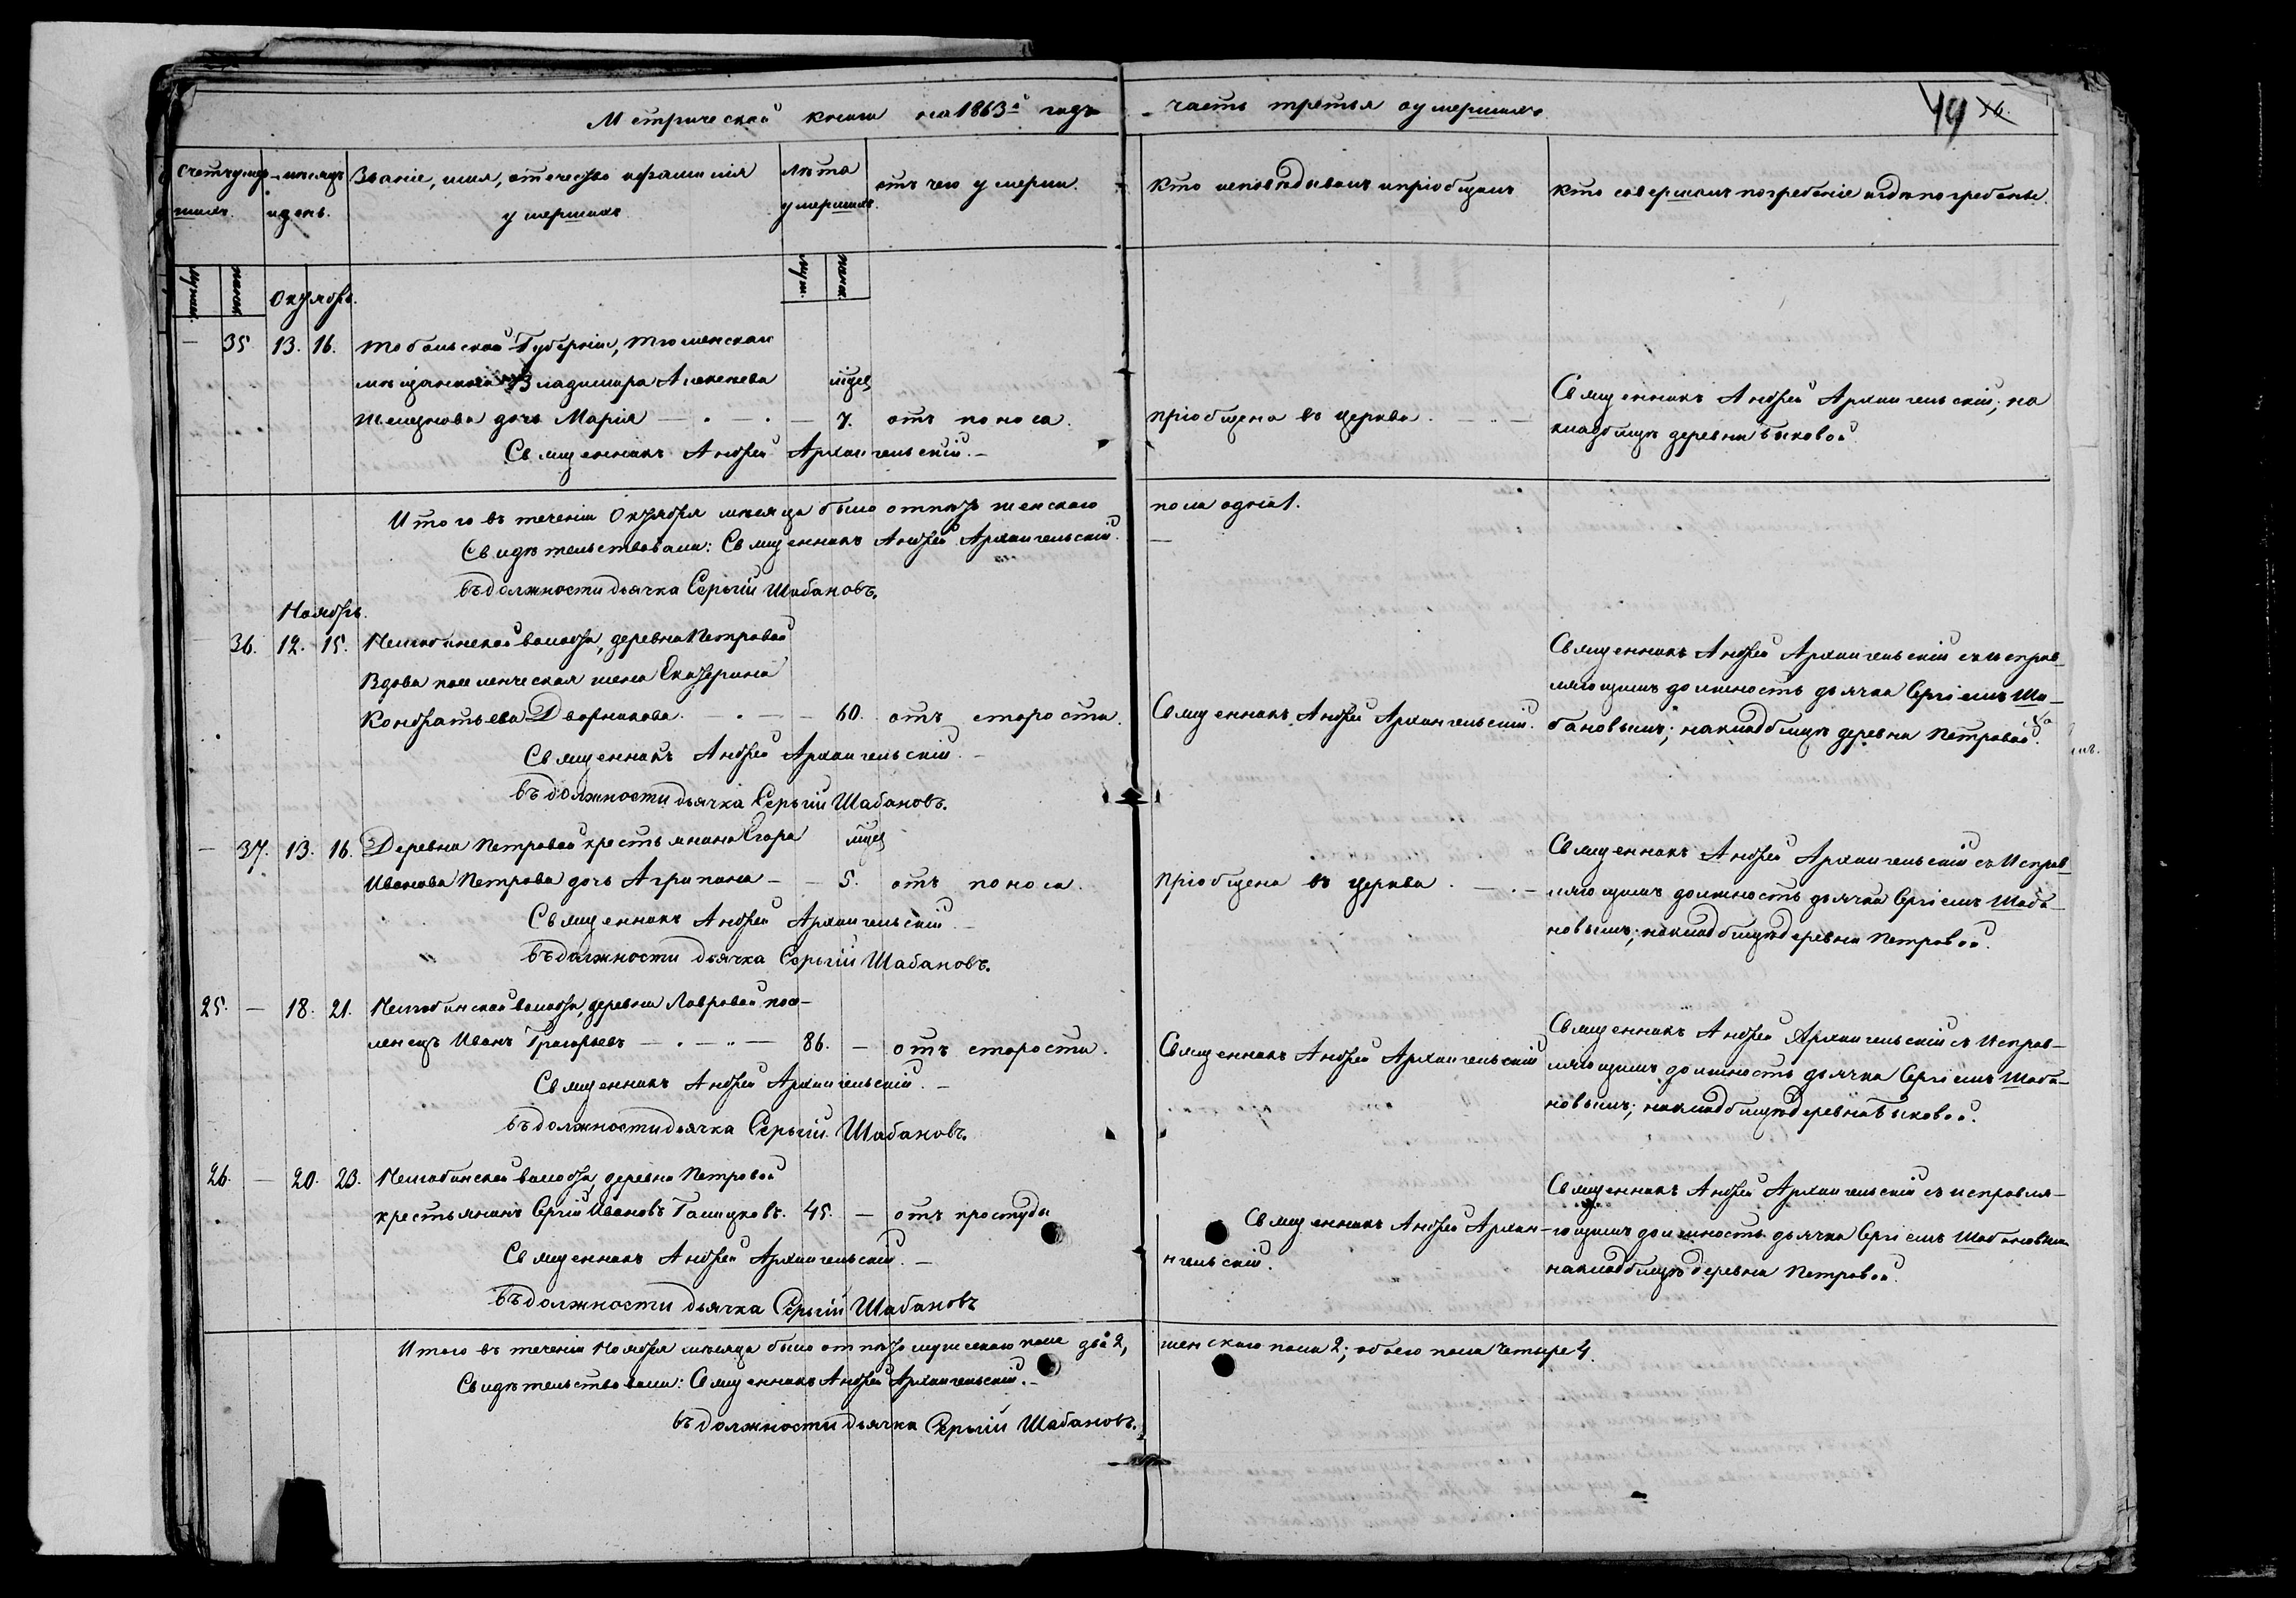 Метрической книги на 1863й годъ часть третья о умершихъ
49
Счетъ умер- мѣсяцъ Званіе, имя, отечество и фамилія Лѣта отъ чего умерли. Кто исповѣдывалъ и пріобщалъ Кто совершалъ погребеніе и гдѣ погребены.
шихъ. и день. умершихъ умершихъ.
мужеск. женск. муж. женск.
Октябрь.
— 35. 13. 16. Тобольской Губерніи, тюменскаго
мѣщанина Владимира Алексеева мцев
дочь Марія — . — . — 7. отъ поноса. пріобщена въ церкви. — .. —
Священникъ Андрей Архангельскій; на
кладбищѣ деревни Быковой.
Священникъ Андрей Архангельскій. —
Итого въ теченіи Октября мѣсяца было отпѣто женскаго пола одна 1.
Свидѣтельствовали: Священникъ Андрей Архангельскій.
въ должности дьячка Сергій Шабановъ.
Ноябрь.
36. 12. 15. волости, деревни Петровой
Вдова поселенческая жена Екатерина
Кондратьева Дворникова. — . — — 60. отъ старости. Священникъ Андрей Архангельскій.
Священникъ Андрей Архангельскій съ исправ-
ляющимъ должность дьячка Сергіемъ Ша-
бановымъ; на кладбищѣ деревни Петровой.
Священникъ Андрей Архангельскій. —
въ должности дьячка Сергій Шабановъ.
— 37. 13. 16. Деревни Петровой крестьянина Егора мцев
Иванова Петрова дочь Агрипина — — 5. отъ поноса. пріобщена въ церкви. — . —
Священникъ Андрей Архангельскій съ Исправ-
ляющимъ должность дьячка Сергіемъ Шаба-
новымъ; на кладбищѣ деревни Петровой.
Священникъ Андрей Архангельскій. —
въ должности дьячка Сергій Шабановъ.
25. — 18. 21. волости, деревни Лавровой посе-
ленецъ Иванъ Григорьевъ — . — .. — 86. — отъ старости. Священникъ Андрей Архангельскій
Священникъ Андрей Архангельскій съ Исправ-
ляющимъ должность дьячка Сергіемъ Шаба-
новымъ; на кладбищѣ деревни Быковой.
Священникъ Андрей Архангельскій. —
въ должности дьячка Сергій Шабановъ.
26. — 20. 23. волости, деревни Петровой
крестьянинъ Сергій Ивановъ 45. — отъ простуды
Священникъ Андрей Архан-
нгельскій.
Священникъ Андрей Архангельскій съ исправля-
ющимъ должность дьячка Сергіемъ Шабановымъ
на кладбищѣ деревни Петровой.
Священникъ Андрей Архангельскій. —
въ должности дьячка Сергій Шабановъ
Итого въ теченіи Ноября мѣсяца было отпѣто мужескаго пола два 2, женскаго пола 2; обоего пола четыре 4.
Свидѣтельствовали: Священникъ Андрей Архангельскій. —
въ должности дьячка Сергій Шабановъ.